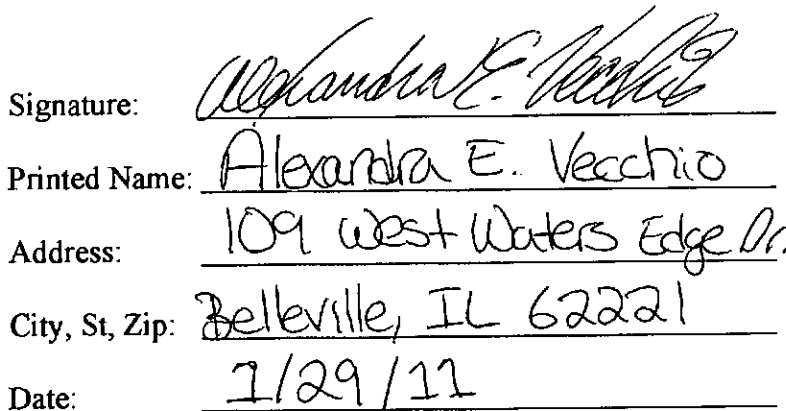 Signature: Alexandra E. Vecchio
Printed Name: Alexandra E. Vecchio
Address: 109 West Waters Edge Dr.
City, St, Zip: Belleville, IL 62221
Date: 1/29/11